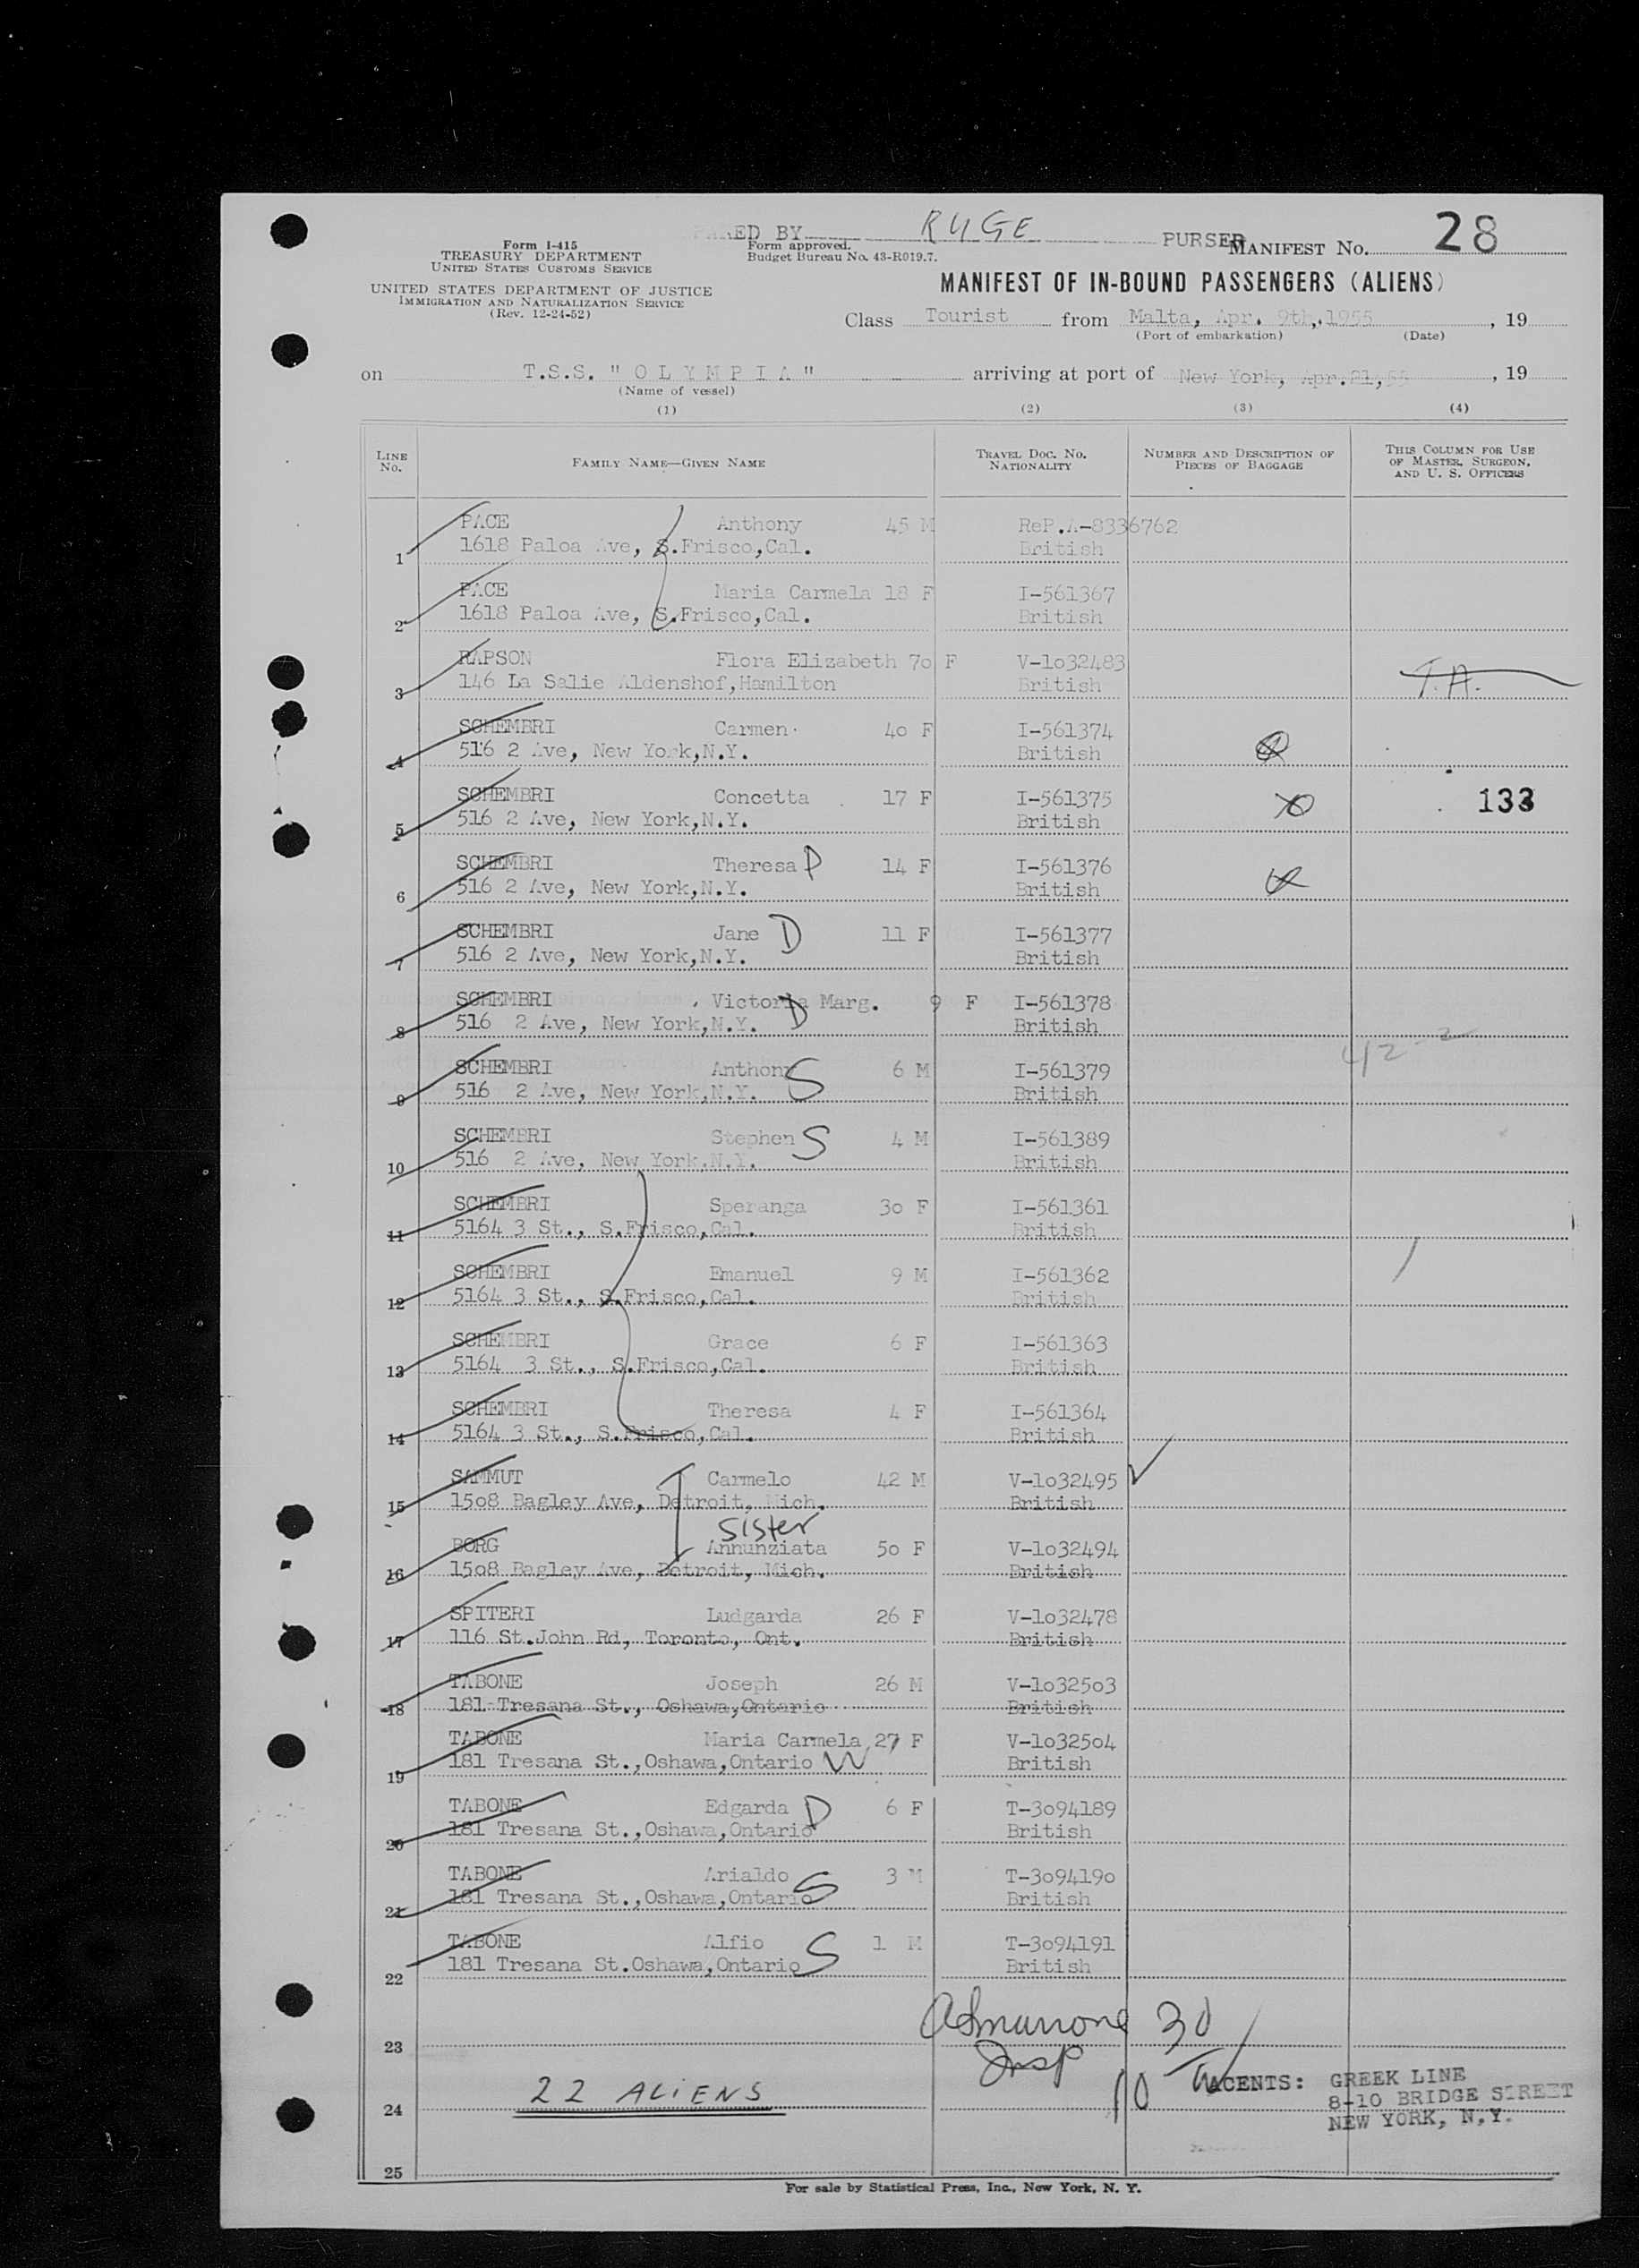 RED BY RUGE PURSER
Form I-415
TREASURY DEPARTMENT
UNITED STATES CUSTOMS SERVICE
UNITED STATES DEPARTMENT OF JUSTICE
IMMIGRATION AND NATURALIZATION SERVICE
(Rev. 12-24-52)
Form approved.
Budget Bureau No. 43-R019.7.
MANIFEST No. 28
MANIFEST OF IN-BOUND PASSENGERS (ALIENS)
Class Tourist from Malta, Apr. 9th, 1955, 19
(Port of embarkation) (Date)
on T.S.S. "OLYMPIA" arriving at port of New York, Apr.21,55, 19
(Name of vessel)
(1) (2) (3) (4)
LINE No. FAMILY NAME—GIVEN NAME TRAVEL DOC. NO. NATIONALITY NUMBER AND DESCRIPTION OF PIECES OF BAGGAGE THIS COLUMN FOR USE OF MASTER, SURGEON, AND U. S. OFFICERS
PACE Anthony 45 M ReP.A-8336762
1 1618 Paloa Ave, S.Frisco,Cal. British
PACE Maria Carmela 18 F I-561367
2 1618 Paloa Ave, S.Frisco,Cal. British
RAPSON Flora Elizabeth 70 F V-1032483
3 146 La Salie Aldenshof,Hamilton British T.A.
SCHEMBRI Carmen 40 F I-561374
4 516 2 Ave, New York,N.Y. British
SCHEMBRI Concetta 17 F I-561375 133
5 516 2 Ave, New York,N.Y. British
SCHEMBRI Theresa D 14 F I-561376
6 516 2 Ave, New York,N.Y. British
SCHEMBRI Jane D 11 F I-561377
7 516 2 Ave, New York,N.Y. British
SCHEMBRI Victoria Marg. 9 F I-561378
8 516 2 Ave, New York,N.Y. D British
SCHEMBRI Anthony S 6 M I-561379
9 516 2 Ave, New York,N.Y. British
SCHEMBRI Stephen S 4 M I-561389
10 516 2 Ave, New York,N.Y. British
SCHEMBRI Speranga 30 F I-561361
11 5164 3 St., S.Frisco,Cal. British
SCHEMBRI Emanuel 9 M I-561362
12 5164 3 St., S.Frisco,Cal. British
SCHEMBRI Grace 6 F I-561363
13 5164 3 St., S.Frisco,Cal. British
SCHEMBRI Theresa 4 F I-561364
14 5164 3 St., S.Frisco,Cal. British
SAMMUT Carmelo 42 M V-1032495
15 1508 Bagley Ave, Detroit, Mich. British
sister
BORG Annunziata 50 F V-1032494
16 1508 Bagley Ave, Detroit, Mich. British
SPITERI Ludgarda 26 F V-1032478
17 116 St.John Rd, Toronto, Ont. British
TABONE Joseph 26 M V-1032503
18 181 Tresana St., Oshawa,Ontario British
TABONE Maria Carmela 27 F V-1032504
19 181 Tresana St.,Oshawa,Ontario W British
TABONE Edgarda D 6 F T-3094189
20 181 Tresana St.,Oshawa,Ontario British
TABONE Arialdo S 3 M T-3094190
21 181 Tresana St.,Oshawa,Ontario British
TABONE Alfio S 1 M T-3094191
22 181 Tresana St.Oshawa,Ontario British
23 Insp 30
22 ALIENS 10
AGENTS: GREEK LINE
8-10 BRIDGE STREET
NEW YORK, N.Y.
24
25
For sale by Statistical Press, Inc., New York, N. Y.